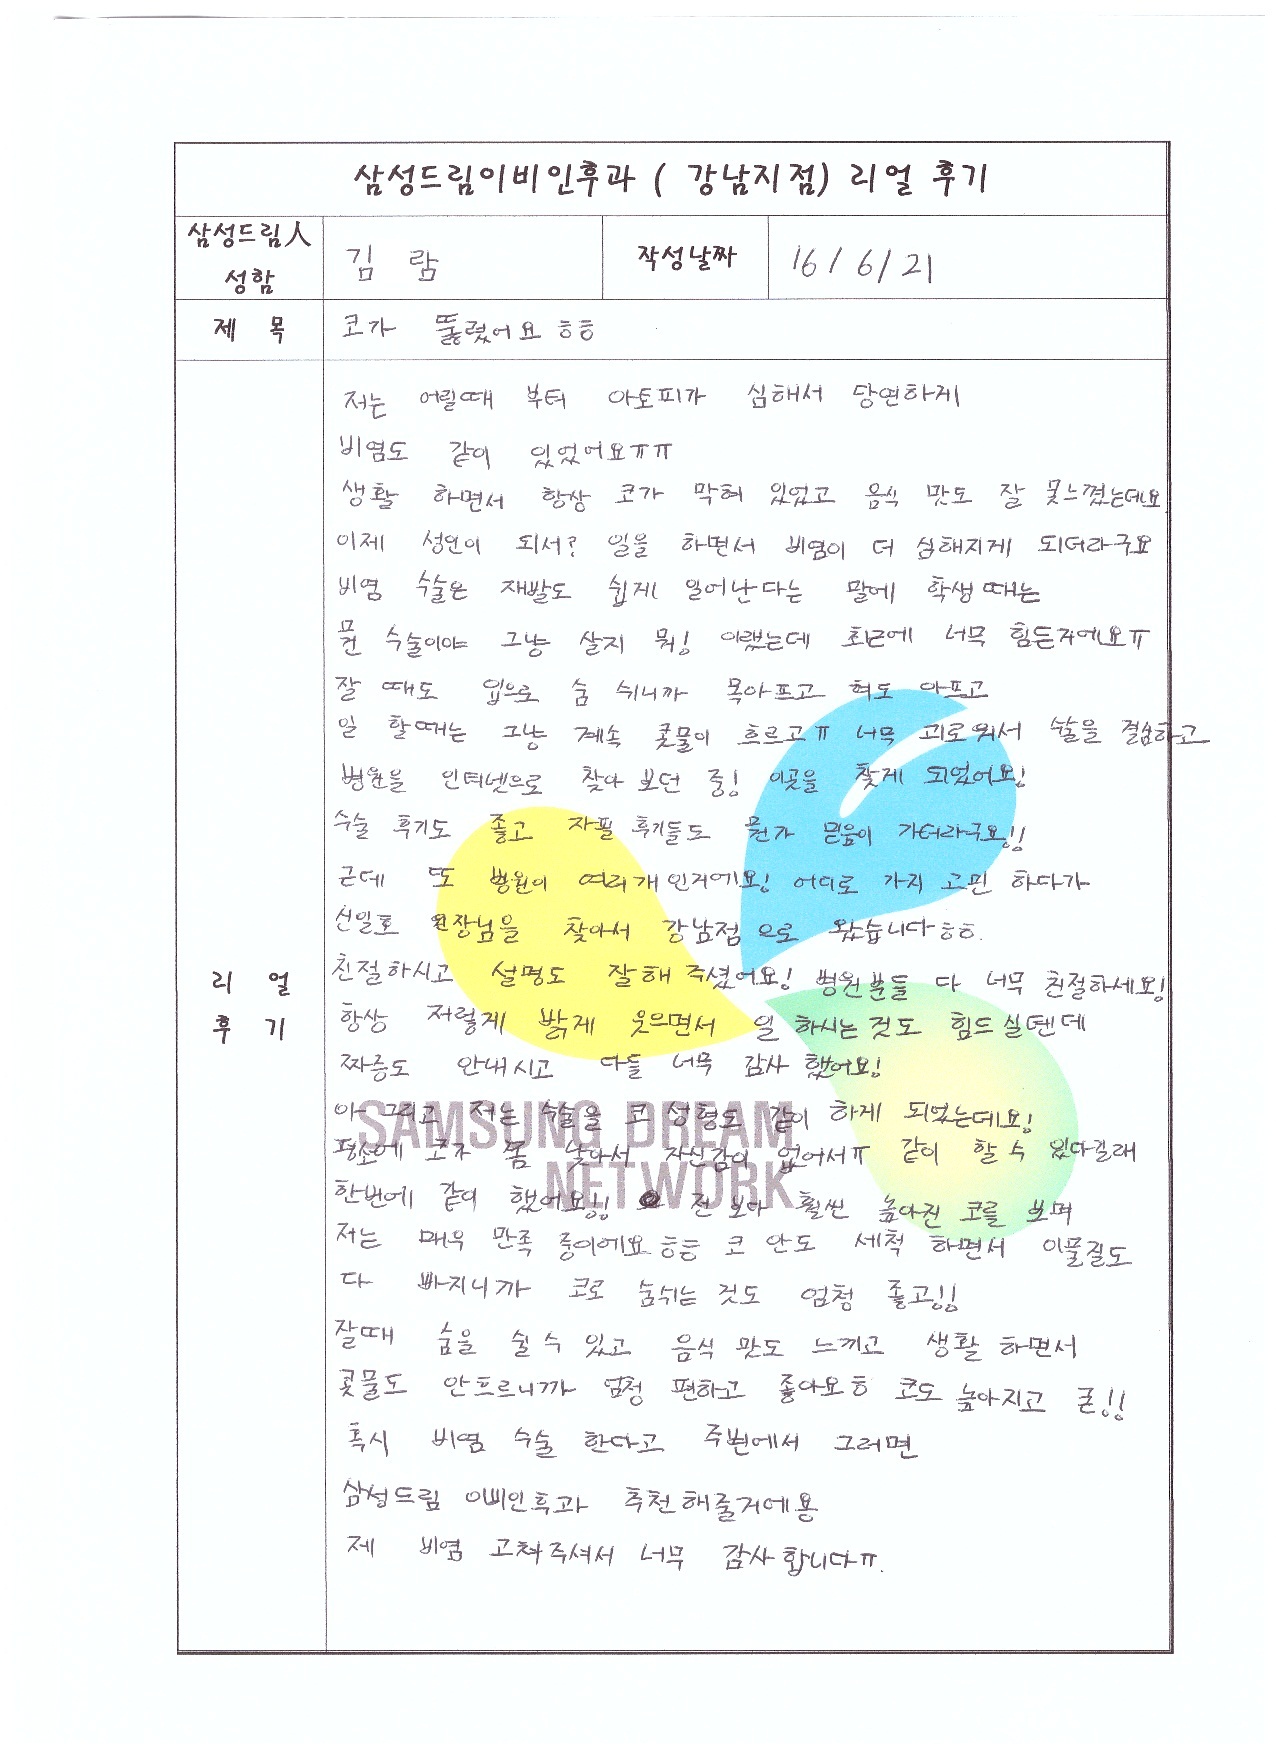 삼성드림이비인후과 ( 강남지점) 리얼 후기
삼성드림人 성함
김 람
작성날짜
16/6/21
제 목
코가 뚫렸어요 ㅎㅎ
리 얼 후 기
저는 어릴때 부터 아토피가 심해서 당연하게
비염도 같이 있었어요ㅠㅠ
생활 하면서 항상 코가 막혀 있었고 음식 맛도 잘 못느꼈는데요
이제 성인이 되서? 일을 하면서 비염이 더 심해지게 되더라구요
비염 수술은 재발도 쉽게 일어난다는 말에 학생때는
뭔 수술이야 그냥 살지 뭐! 이랬는데 최근에 너무 힘든거에요ㅠ
잘 때도 입으로 숨 쉬니까 목아프고 혀도 아프고
일 할때는 그냥 계속 콧물이 흐르고ㅠ 너무 괴로워서 수술을 결심하고
병원을 인터넷으로 찾아 보던 중! 이곳을 찾게 되었어요!
수술 후기도 좋고 자필 후기들도 뭔가 믿음이 가더라구요!!
근데 또 병원이 여러개인거에요! 어디로 가지 고민 하다가
선일호 원장님을 찾아서 강남점으로 왔습니다ㅎㅎ.
친절하시고 설명도 잘해 주셨어요! 병원분들 다 너무 친절하세요!
항상 저렇게 밝게 웃으면서 일 하시는것도 힘드실텐데
짜증도 안내시고 다들 너무 감사 했어요!
아 그리고 저는 수술을 코 성형도 같이 하게 되었는데요!
평소에 코가 쫌 낮아서 자신감이 없어서ㅠ 같이 할 수 있다길래
한번에 같이 했어요!! 전 보다 훨씬 높아진 코를 보며
저는 매우 만족 중이에요ㅎㅎ 코 안도 세척 하면서 이물질도
다 빠지니까 코로 숨쉬는 것도 엄청 좋고!!
잘때 숨을 쉴 수 있고 음식 맛도 느끼고 생활 하면서
콧물도 안흐르니까 엄청 편하고 좋아요ㅎ 코도 높아지고 굳!!
혹시 비염 수술 한다고 주변에서 그러면
삼성드림 이비인후과 추천해줄거에용
제 비염 고쳐주셔서 너무 감사합니다ㅠ.
SAMSUNG DREAM
NETWORK